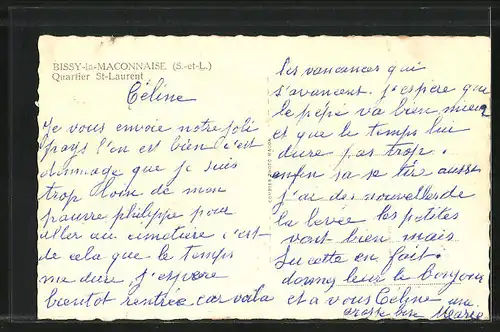 BISSY-la-MACONNAISE (S.-et-L.)
Quartier St-Laurent
Céline
Je vous envoie notre joli
pays l'on est bien c'est
dommage que je suis
trop loin de mon
pauvre philippe pour
aller au cimetière c'est
de cela que le temps
me dure j'espère
bientôt rentrée car voila
les vancances qui
s'avancent. j'espère que
le pépé va bien mieux
et que le temps lui
dure pas trop.
enfin sa se tire aussi
j'ai des nouvelles de
la levée les petites
vont bien mais
Lucette en fait.
donnez leur le bonjour
et a vous Céline une
grosse bise Marie